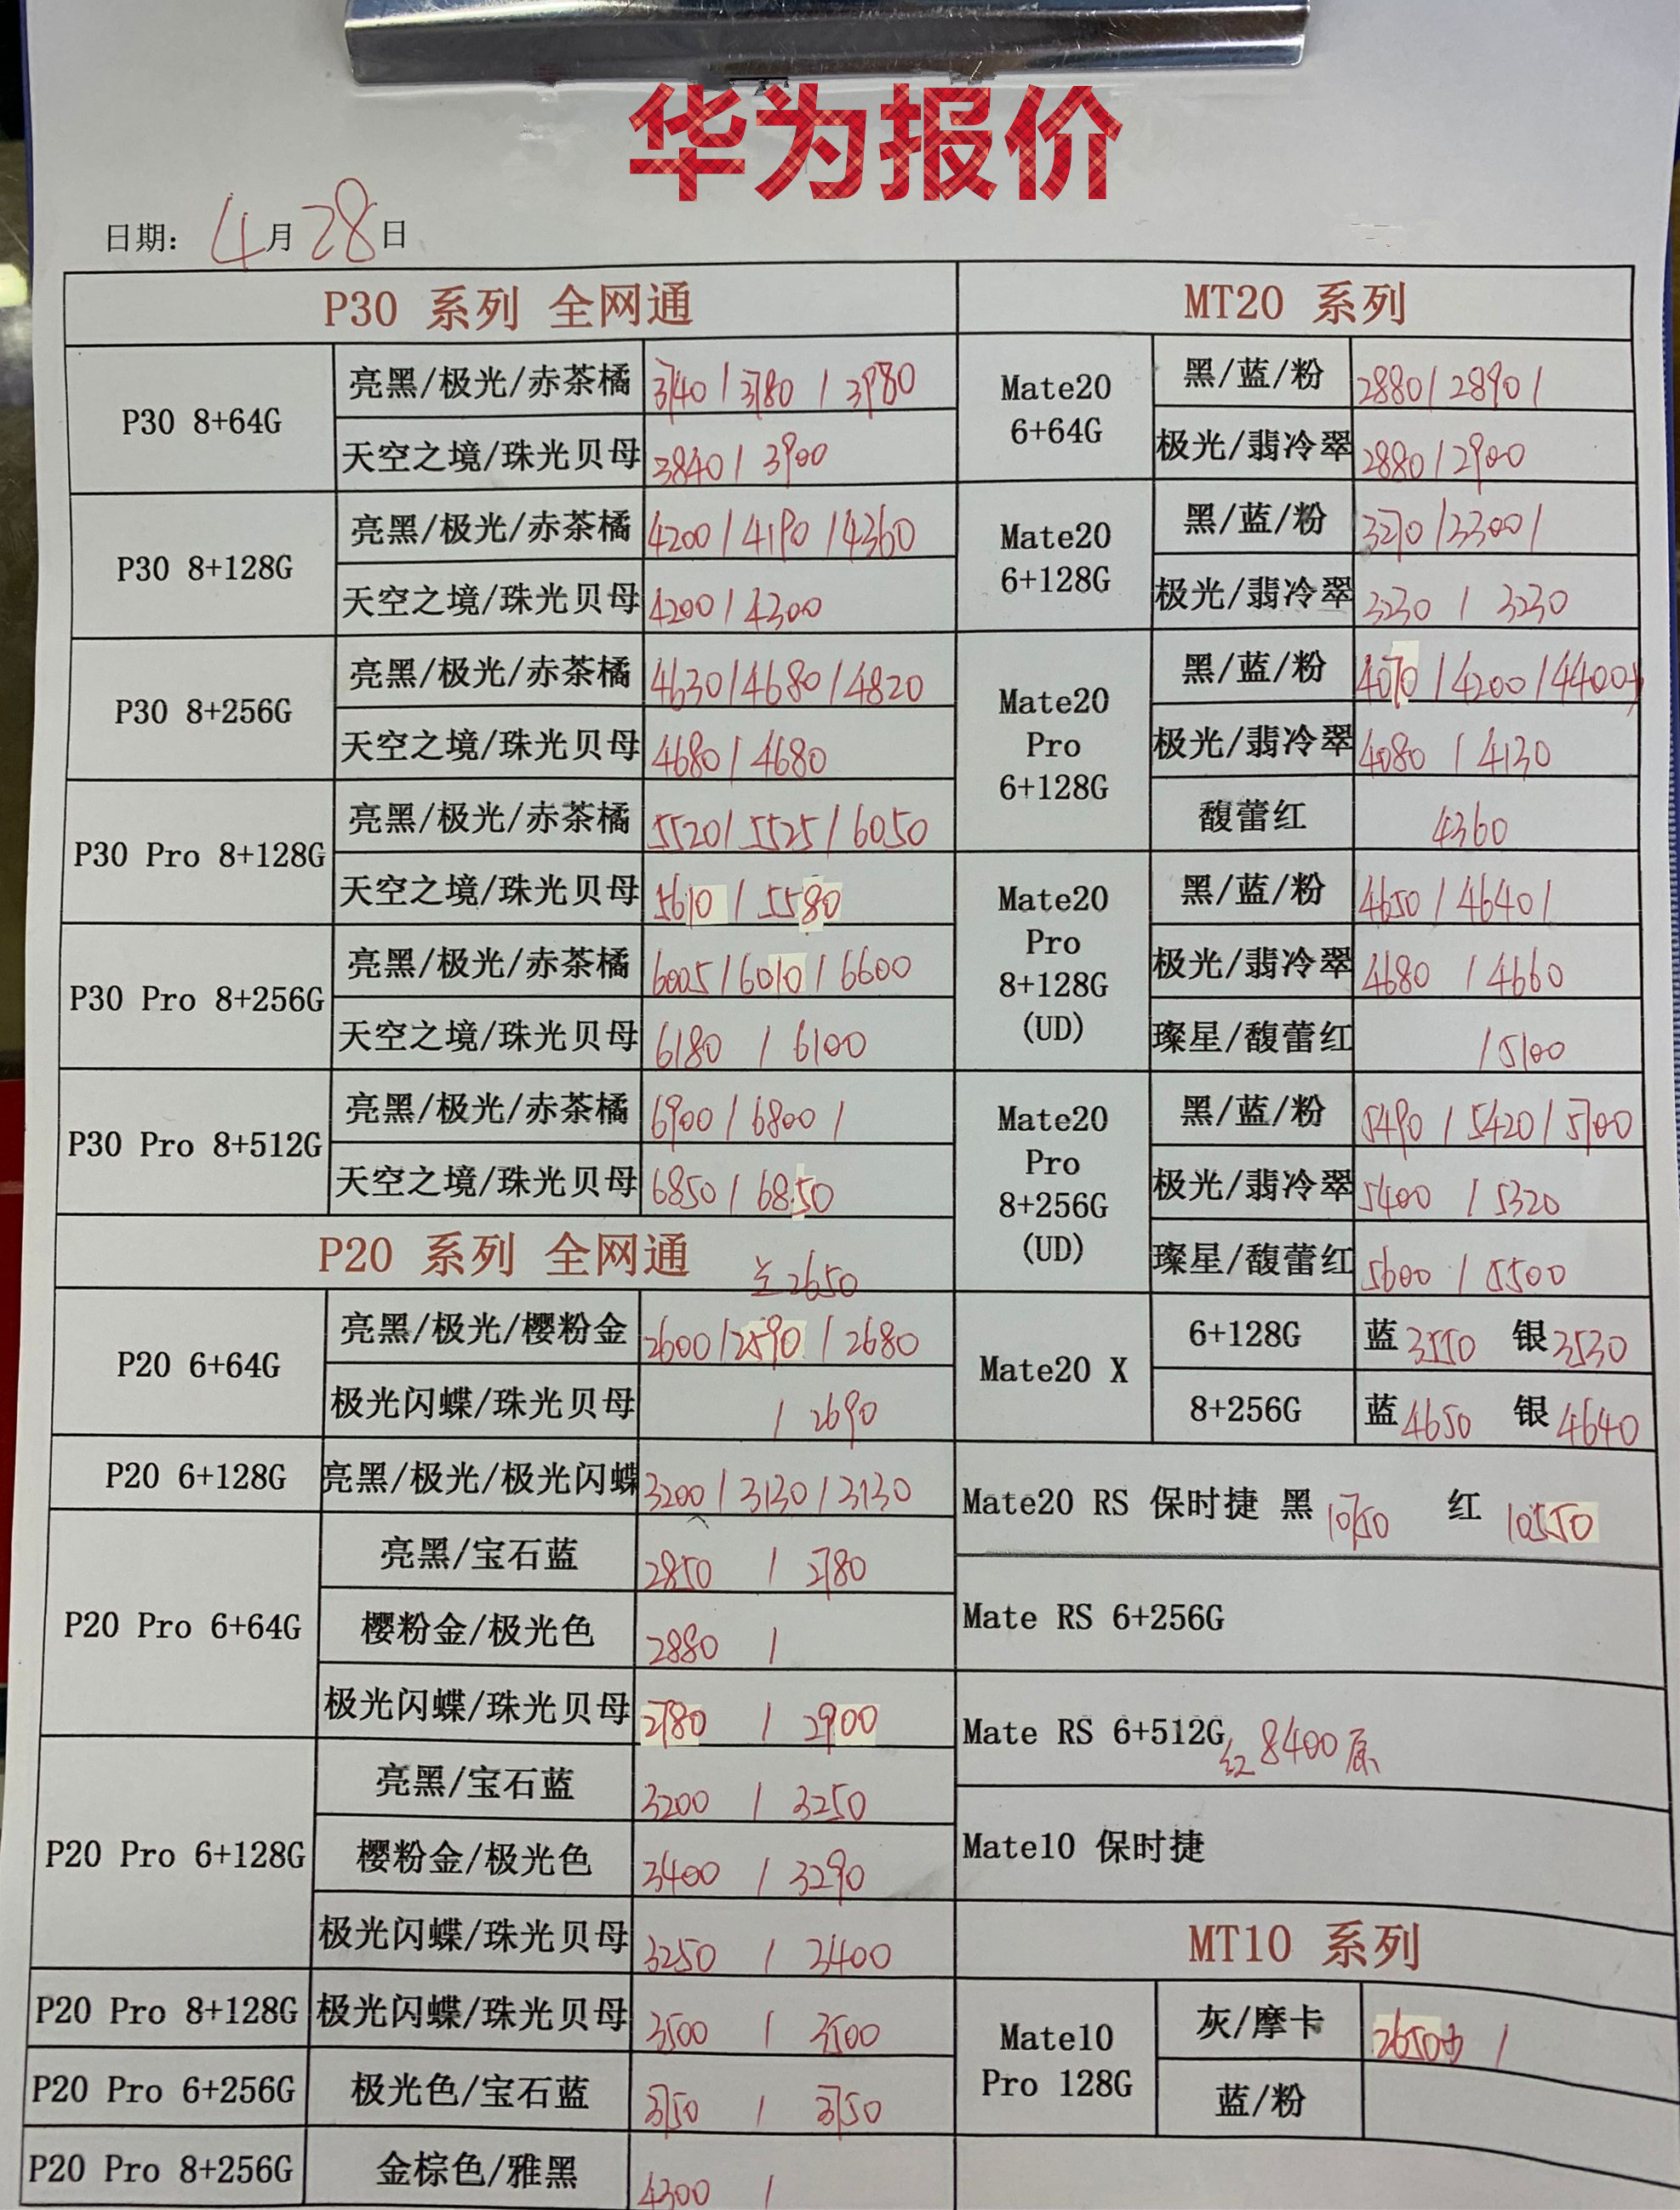 华为报价
日期: 4月28日
P30 系列 全网通
P30 8+64G
亮黑/极光/赤茶橘 3740 / 3780 / 3980
天空之境/珠光贝母 3840 / 3900
P30 8+128G
亮黑/极光/赤茶橘 4200 / 4190 / 4360
天空之境/珠光贝母 4200 / 4300
P30 8+256G
亮黑/极光/赤茶橘 4630 / 4680 / 4820
天空之境/珠光贝母 4680 / 4680
P30 Pro 8+128G
亮黑/极光/赤茶橘 5520 / 5525 / 6050
天空之境/珠光贝母 5610 / 5580
P30 Pro 8+256G
亮黑/极光/赤茶橘 6005 / 6010 / 6600
天空之境/珠光贝母 6180 / 6100
P30 Pro 8+512G
亮黑/极光/赤茶橘 6900 / 6800 /
天空之境/珠光贝母 6850 / 6850
P20 系列 全网通
2650
P20 6+64G
亮黑/极光/樱粉金 2600 / 2590 / 2680
极光闪蝶/珠光贝母 / 2690
P20 6+128G
亮黑/极光/极光闪蝶 3200 / 3130 / 3130
P20 Pro 6+64G
亮黑/宝石蓝 2850 / 2780
樱粉金/极光色 2880 /
极光闪蝶/珠光贝母 2780 / 2900
P20 Pro 6+128G
亮黑/宝石蓝 3200 / 3250
樱粉金/极光色 3400 / 3290
极光闪蝶/珠光贝母 3250 / 3400
P20 Pro 8+128G
极光闪蝶/珠光贝母 3500 / 3500
P20 Pro 6+256G
极光色/宝石蓝 3750 / 3750
P20 Pro 8+256G
金棕色/雅黑 4300 /
MT20 系列
Mate20
6+64G
黑/蓝/粉 2880 / 2890 /
极光/翡冷翠 2880 / 2900
Mate20
6+128G
黑/蓝/粉 3270 / 3300 /
极光/翡冷翠 3230 / 3230
Mate20
Pro
6+128G
黑/蓝/粉 4070 / 4200 / 4400
极光/翡冷翠 4080 / 4130
馥蕾红 4360
Mate20
Pro
8+128G
(UD)
黑/蓝/粉 4650 / 4640 /
极光/翡冷翠 4680 / 4660
璨星/馥蕾红 / 5100
Mate20
Pro
8+256G
(UD)
黑/蓝/粉 5490 / 5420 / 5700
极光/翡冷翠 5400 / 5320
璨星/馥蕾红 5600 / 5500
Mate20 X
6+128G 蓝 3550 银 3530
8+256G 蓝 4650 银 4640
Mate20 RS 保时捷 黑 10750 红 10550
Mate RS 6+256G
Mate RS 6+512G 红 8400 原
Mate10 保时捷
MT10 系列
Mate10
Pro 128G
灰/摩卡 2650 /
蓝/粉